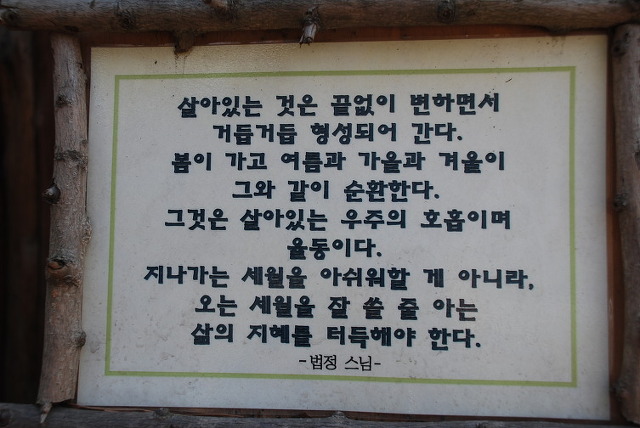 살아있는 것은 끝없이 변하면서
거듭거듭 형성되어 간다.
봄이 가고 여름과 가을과 겨울이
그와 같이 순환한다.
그것은 살아있는 우주의 호흡이며
율동이다.
지나가는 세월을 아쉬워할 게 아니라,
오는 세월을 잘 쓸 줄 아는
삶의 지혜를 터득해야 한다.
-법정 스님-